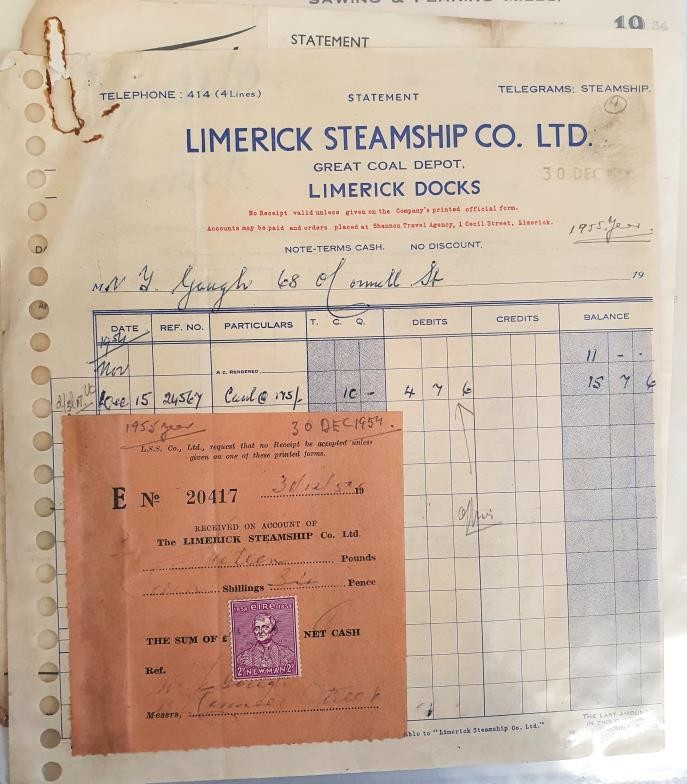 SAWING & PLANING MILLS.
1934
STATEMENT
TELEPHONE : 414 (4 Lines)
STATEMENT
TELEGRAMS: STEAMSHIP.
4
LIMERICK STEAMSHIP CO. LTD.
GREAT COAL DEPOT,
30 DEC
LIMERICK DOCKS
No Receipt valid unless given on the Company's printed official form.
Accounts may be paid and orders placed at Shannon Travel Agency, 1 Cecil Street, Limerick.
1955 Year.
NOTE-TERMS CASH. NO DISCOUNT.
Gough 68 O'Connell St
19
DATE REF. NO. PARTICULARS T. C. Q. DEBITS CREDITS BALANCE
1954
Nov A/C. RENDERED 11 - -
Dec 15 24567 Coal @ 175/- 10 - 4 7 6 15 7 6
1955 Year 30 DEC 1954.
L.S.S. Co., Ltd., request that no Receipt be accepted unless
given on one of these printed forms.
E No 20417 19
RECEIVED ON ACCOUNT OF
The LIMERICK STEAMSHIP Co. Ltd.
Pounds
Shillings Six Pence
1854 EIRE 1954
THE SUM OF £ NET CASH
2D NEWMAN 2D
Ref.
Messrs,
able to "Limerick Steamship Co. Ltd."
THE LAST AMOUNT
IN THIS